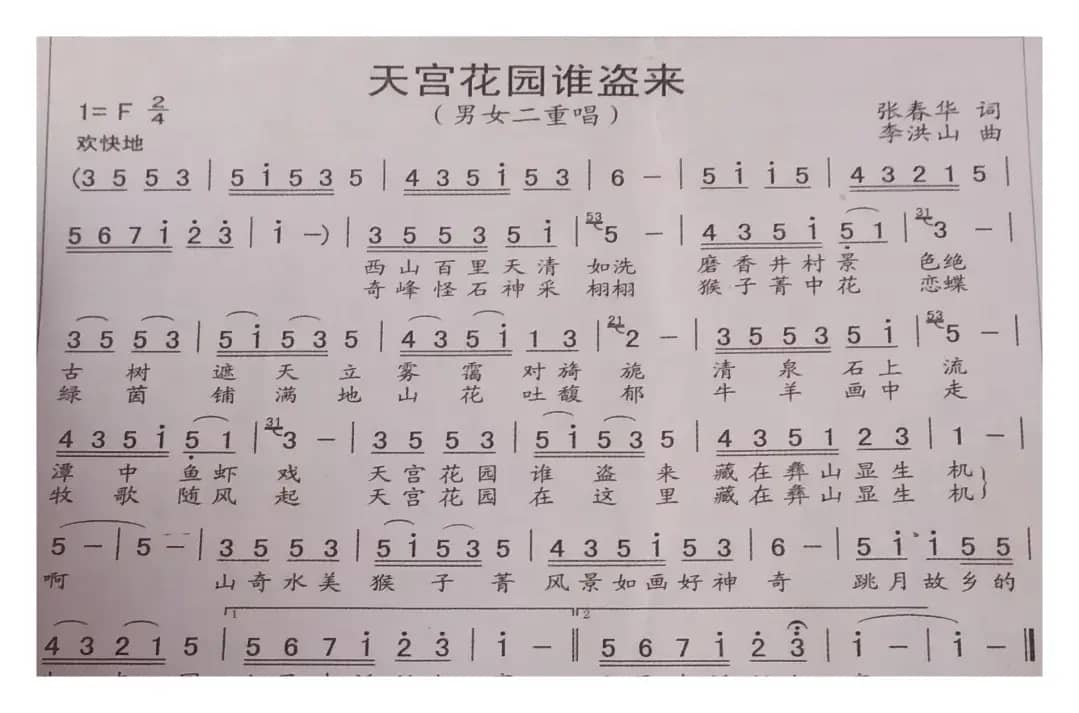 天宫花园谁盗来
1= F 2/4
（男女二重唱）
张春华 词
欢快地
李洪山 曲
(3 5 5 3 | 5 i 5 3 5 | 4 3 5 i 5 3 | 6 − | 5 i i 5 | 4 3 2 1 5 |
5 6 7 i 2 3 | i −) | 3 5 5 3 5 i | 53 5 − | 4 3 5 i 5 1 | 31 3 − |
西山百里天清 如洗 磨香井村景 色绝
奇峰怪石神采 栩栩 猴子菁中花 恋蝶
3 5 5 3 | 5 i 5 3 5 | 4 3 5 i 1 3 | 21 2 − | 3 5 5 3 5 i | 53 5 − |
古树遮天立 雾霭对旖旎 清泉石上流
绿茵铺满地 山花吐馥郁 牛羊画中走
4 3 5 i 5 1 | 31 3 − | 3 5 5 3 | 5 i 5 3 5 | 4 3 5 1 2 3 | 1 − |
潭中鱼虾戏 天宫花园谁盗来 藏在彝山显生机
牧歌随风起 天宫花园在这里 藏在彝山显生机
5 − | 5 − | 3 5 5 3 | 5 i 5 3 5 | 4 3 5 i 5 3 | 6 − | 5 i i 5 5 |
啊 山奇水美猴子菁 风景如画好神奇 跳月故乡的
1 2
4 3 2 1 5 | 5 6 7 i 2 3 | i − || 5 6 7 i 2 3 | i − | i − ||